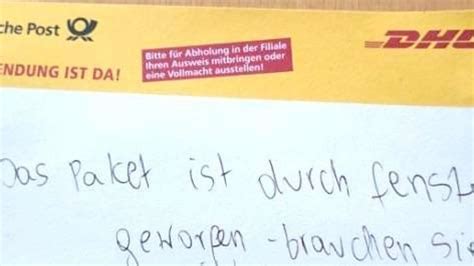 che Post
DHL
ENDUNG IST DA!
Bitte für Abholung in der Filiale
Ihren Ausweis mitbringen oder
eine Vollmacht ausstellen!
Das Paket ist durch fenst
geworfen - brauchen Sie